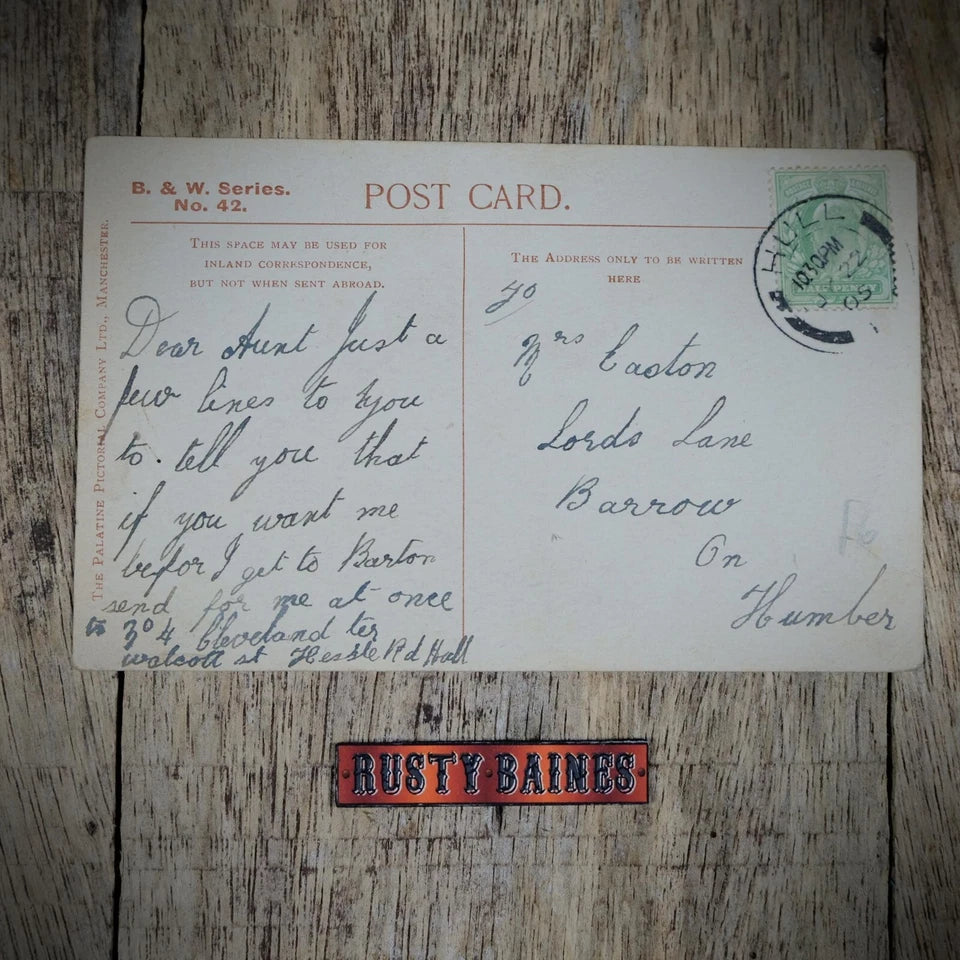 B. & W. Series.
No. 42.
POST CARD.
THE PALATINE PICTORIAL COMPANY LTD., MANCHESTER.
THIS SPACE MAY BE USED FOR
INLAND CORRESPONDENCE,
BUT NOT WHEN SENT ABROAD.
Dear Aunt Just a
few lines to you
to tell you that
if you want me
befor I get to Barton
send for me at once
to 304 Cleveland ter
walcott st Hessle Rd Hull
THE ADDRESS ONLY TO BE WRITTEN
HERE
Mrs Easton
Lords Lane
Barrow
On
Humber
HULL
1030PM
22
05
HALFPENNY
RUSTY BAINES